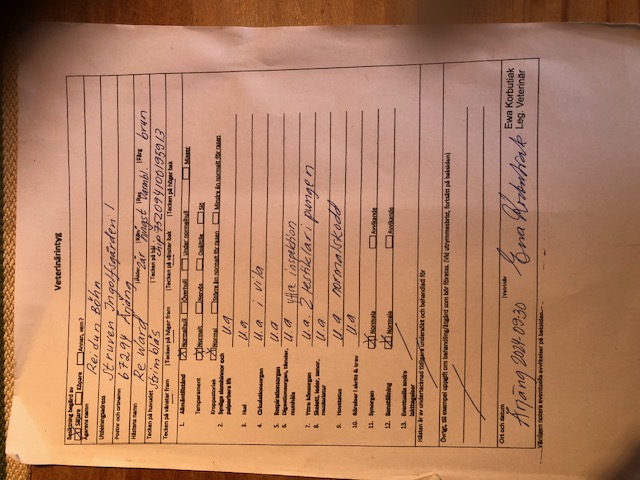 Veterinärintyg
Besiktning begärd av
☒ Säljare ☐ Köpare ☐ Annan, vem?
Ägarens namn Reidun Böhn
Utdelningsadress Struven Ingolfsgården!
Postnr och ortnamn 67294 Årjäng
Hästens namn Be Ward Ålder 2år Kön hingst Ras Varmbl. Färg brun
Tecken på huvudet Strimblås Tecken på hals chip 752094100195913
Tecken på vänster fram Tecken på höger fram Tecken på vänster bak Tecken på höger bak
1. Allmäntillstånd ☒ Normalhull ☐ Överhull ☐ Under normalhull ☐ Mager
2. Temperament ☒ Normalt ☐ Nervös ☐ Slö
Kroppsutveckling ☒ Normal ☐ Större än normalt för rasen ☐ Mindre än normalt för rasen
Synliga slemhinnor och palperbara lfk u a
3. Hud u a
4. Cirkulationsorgan u a i vila
5. Respirationsorgan u a
6.
7. Yttre könsorgan u.a. 2 testiklar i pungen
8. Skelett, leder, senor, muskulatur u a
9. Hovstatus u a normalskodd
10. Rörelser i skritt & trav u a
11. Synorgan ☒ Normala ☐ Avvikande
12. Benställning ☒ Normala ☐ Avvikande
13. Eventuella andra iakttagelser
Hästen är av undertecknad tidigare undersökt och behandlad för
Övrigt, till exempel uppgift om behandling/åtgärd som bör företas. (Vid utrymmesbrist, fortsätt på baksidan)
Ort och datum Årjäng 2024-09-30 Veterinär Ewa Korbutiak
Ewa Korbutiak
Leg. Veterinär
Vänligen notera eventuella avvikelser på baksidan.